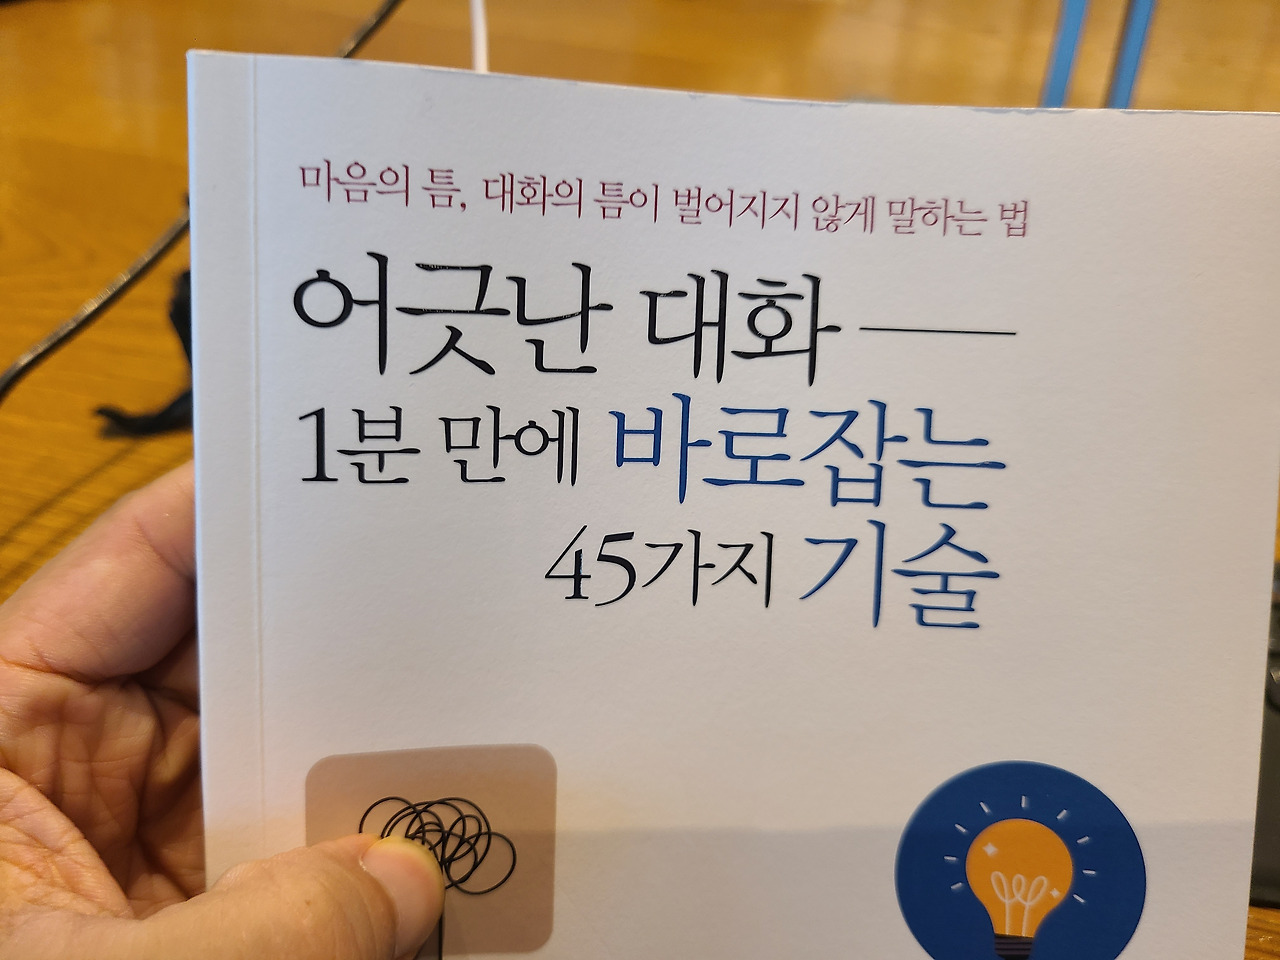 마음의 틈, 대화의 틈이 벌어지지 않게 말하는 법
어긋난 대화
1분 만에 바로잡는
45가지 기술